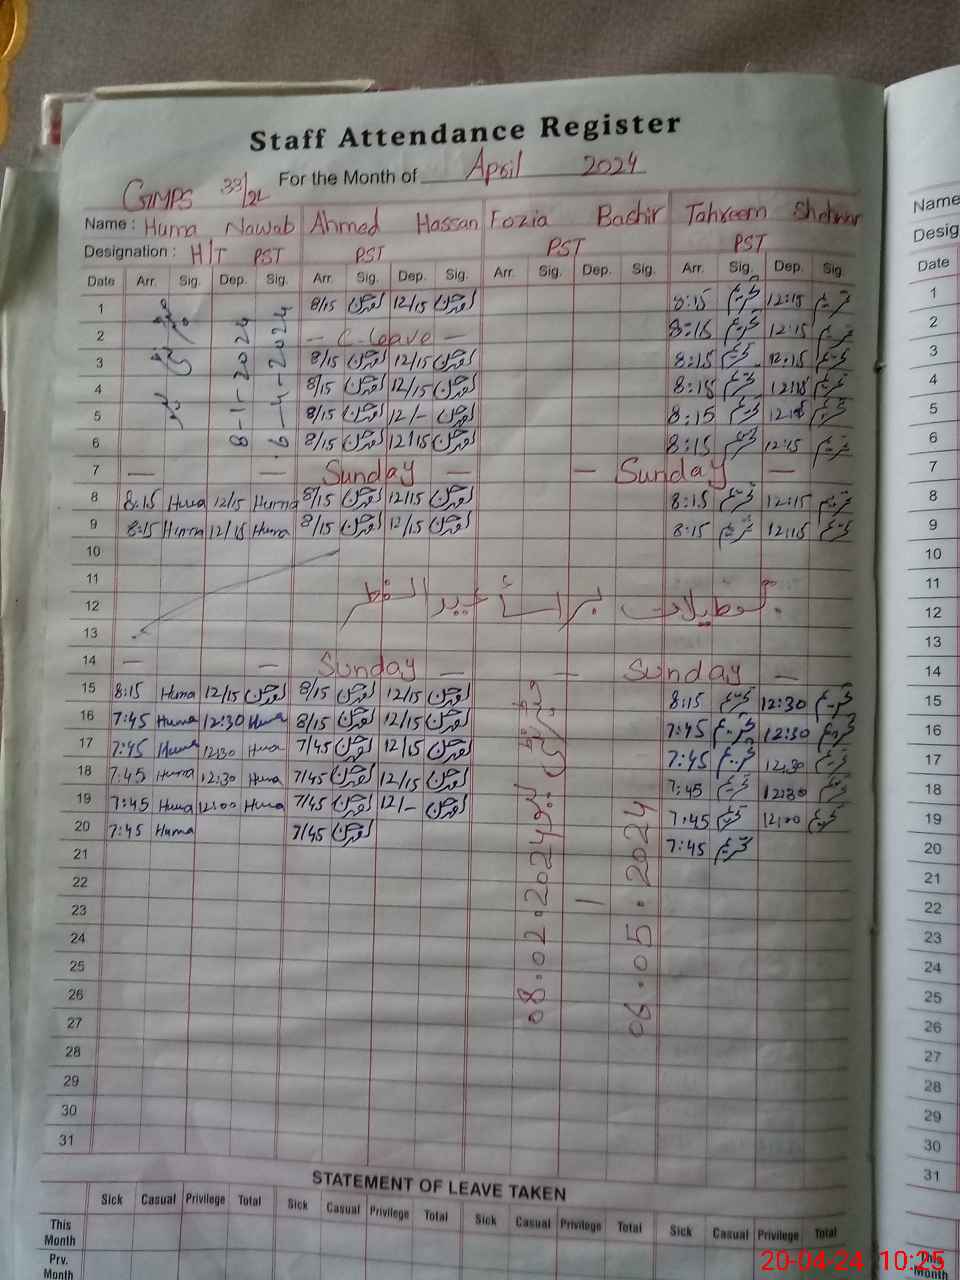 Staff Attendance Register
For the Month of April 2024
GMPS 33/2L
Name : Huma Nawab Ahmed Hassan Fozia Bashir Tahreem Name
Designation : H/T PST PST PST PST
Date Arr. Sig. Dep. Sig. Arr. Sig. Dep. Sig. Arr. Sig. Dep. Sig. Arr. Sig. Dep. Sig. Date
1 8/15 12/15 8:15 12:15 1
2 — C.Leave — 8:15 12:15 2
3 8/15 12/15 8:15 12:15 3
4 8/15 12/15 8:15 12:15 4
5 8/15 12/- 8:15 5
6 8/15 12/15 8:15 12:15 6
8-1-2024
6-4-2024
7 — — Sunday — — Sunday — 7
8 8:15 Huma 12/15 Huma 8/15 12/15 8:15 12:15 8
9 8:15 Huma 12/15 Huma 8/15 12/15 8:15 12:15 9
10 10
11 11
12 تعطیلات برائے عید الفطر 12
13 13
14 — — Sunday — — Sunday — 14
15 8:15 Huma 12/15 8/15 12/15 8:15 12:30 15
16 7:45 Huma 12:30 Huma 8/15 12/15 7:45 12:30 16
17 7:45 Huma 12:30 Huma 7/45 12/15 7:45 12:30 17
18 7:45 Huma 12:30 Huma 7/45 12/15 7:45 12:30 18
19 7:45 Huma 12:00 Huma 7/45 12/- 7:45 12:00 19
20 7:45 Huma 7/45 7:45 20
08.02.2024
06.05.2024
21 21
22 22
23 23
24 24
25 25
26 26
27 27
28 28
29 29
30 30
31 31
STATEMENT OF LEAVE TAKEN
Sick Casual Privilege Total Sick Casual Privilege Total Sick Casual Privilege Total Sick Casual Privilege Total
This Month This Month
Prv. Month
20-04-24 10:25